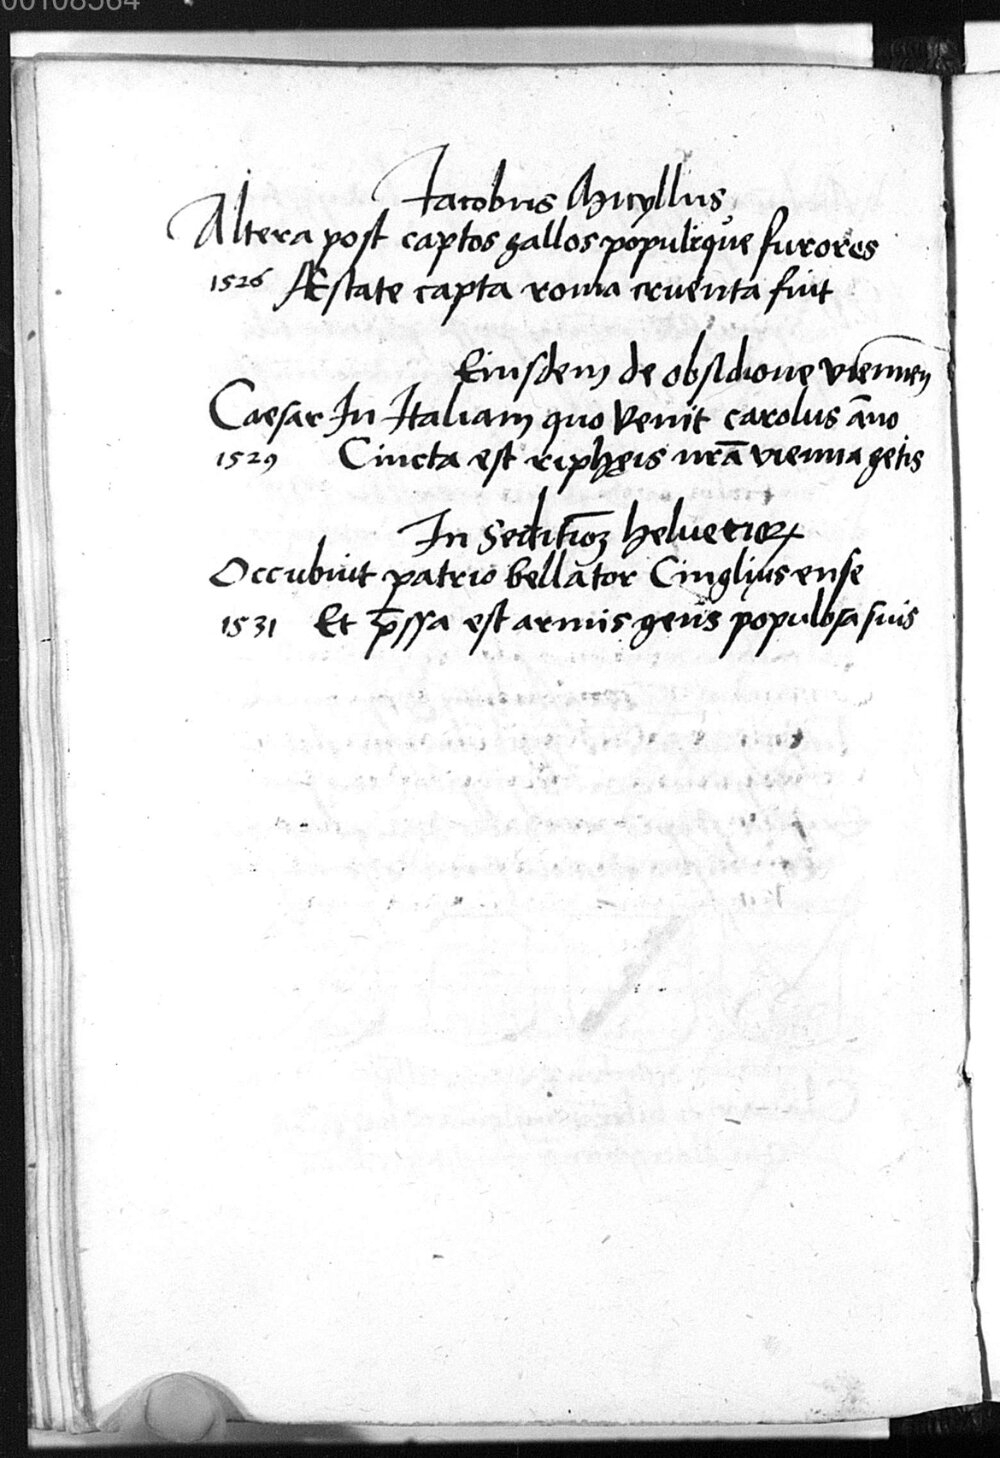 00108564
Iacobus Micyllus
Altera post captos gallos populique furores
1526 Æstate capta roma cruenta fuit
Eiusdem de obsidione viennen̄
Caesar In Italiam quo venit carolus āno
1529 Cincta est ripheis nr̄a vienna getis
In Seditioꝫ helvetioꝝ
Occubuit patrio bellator Cinglius ense
1531 Et p̄ssa est armis gens populosa suis